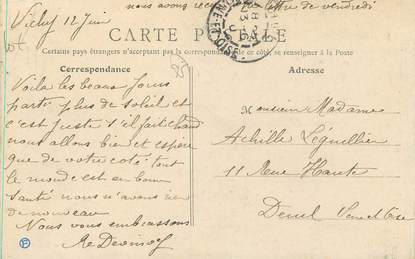 nous avons reçu lettre de vendredi
Vichy 12 Juin
CARTE POSTALE
Certains pays étrangers n'acceptant pas la correspondance de ce côté, se renseigner à la Poste
Correspondance
Adresse
Voila les beaux Jours
parti plus de soleil et
c'est juste s'il fait chaud
nous allons bien et espère
que de votre coté tout
le monde est en bonne
santé nous n'avons rien
de nouveau
Nous vous embrassons
Monsieur Madame
Achille Léguillier
11 Rue Haute
Deuil Seine et Oise